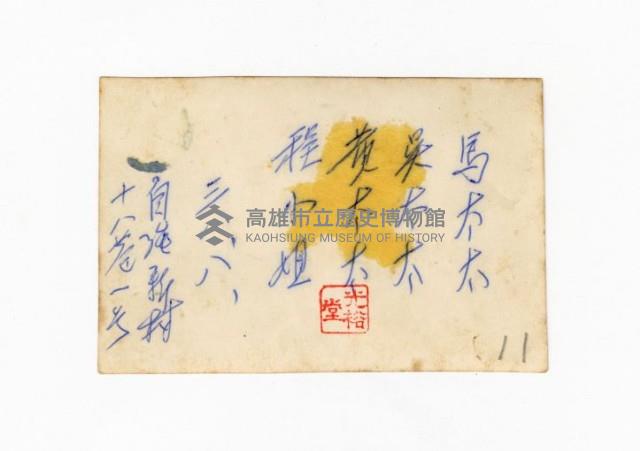 馬太太
吳太太
黃太太
程小姐
三、八、
自強新村
十八巷一号
光裕堂
11
高雄市立歷史博物館
KAOHSIUNG MUSEUM OF HISTORY